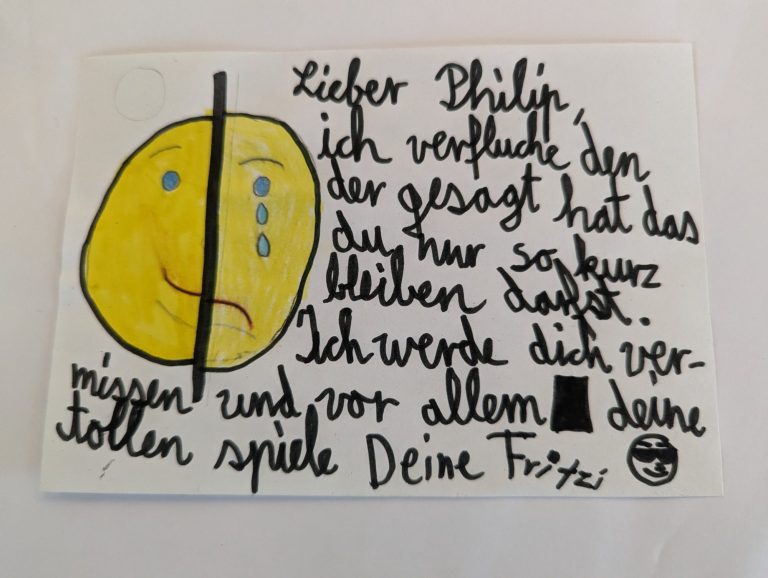 Lieber Philip,
ich verfluche den
der gesagt hat das
du nur so kurz
bleiben darfst.
Ich werde dich ver-
missen und vor allem deine
tollen spiele Deine Fritzi